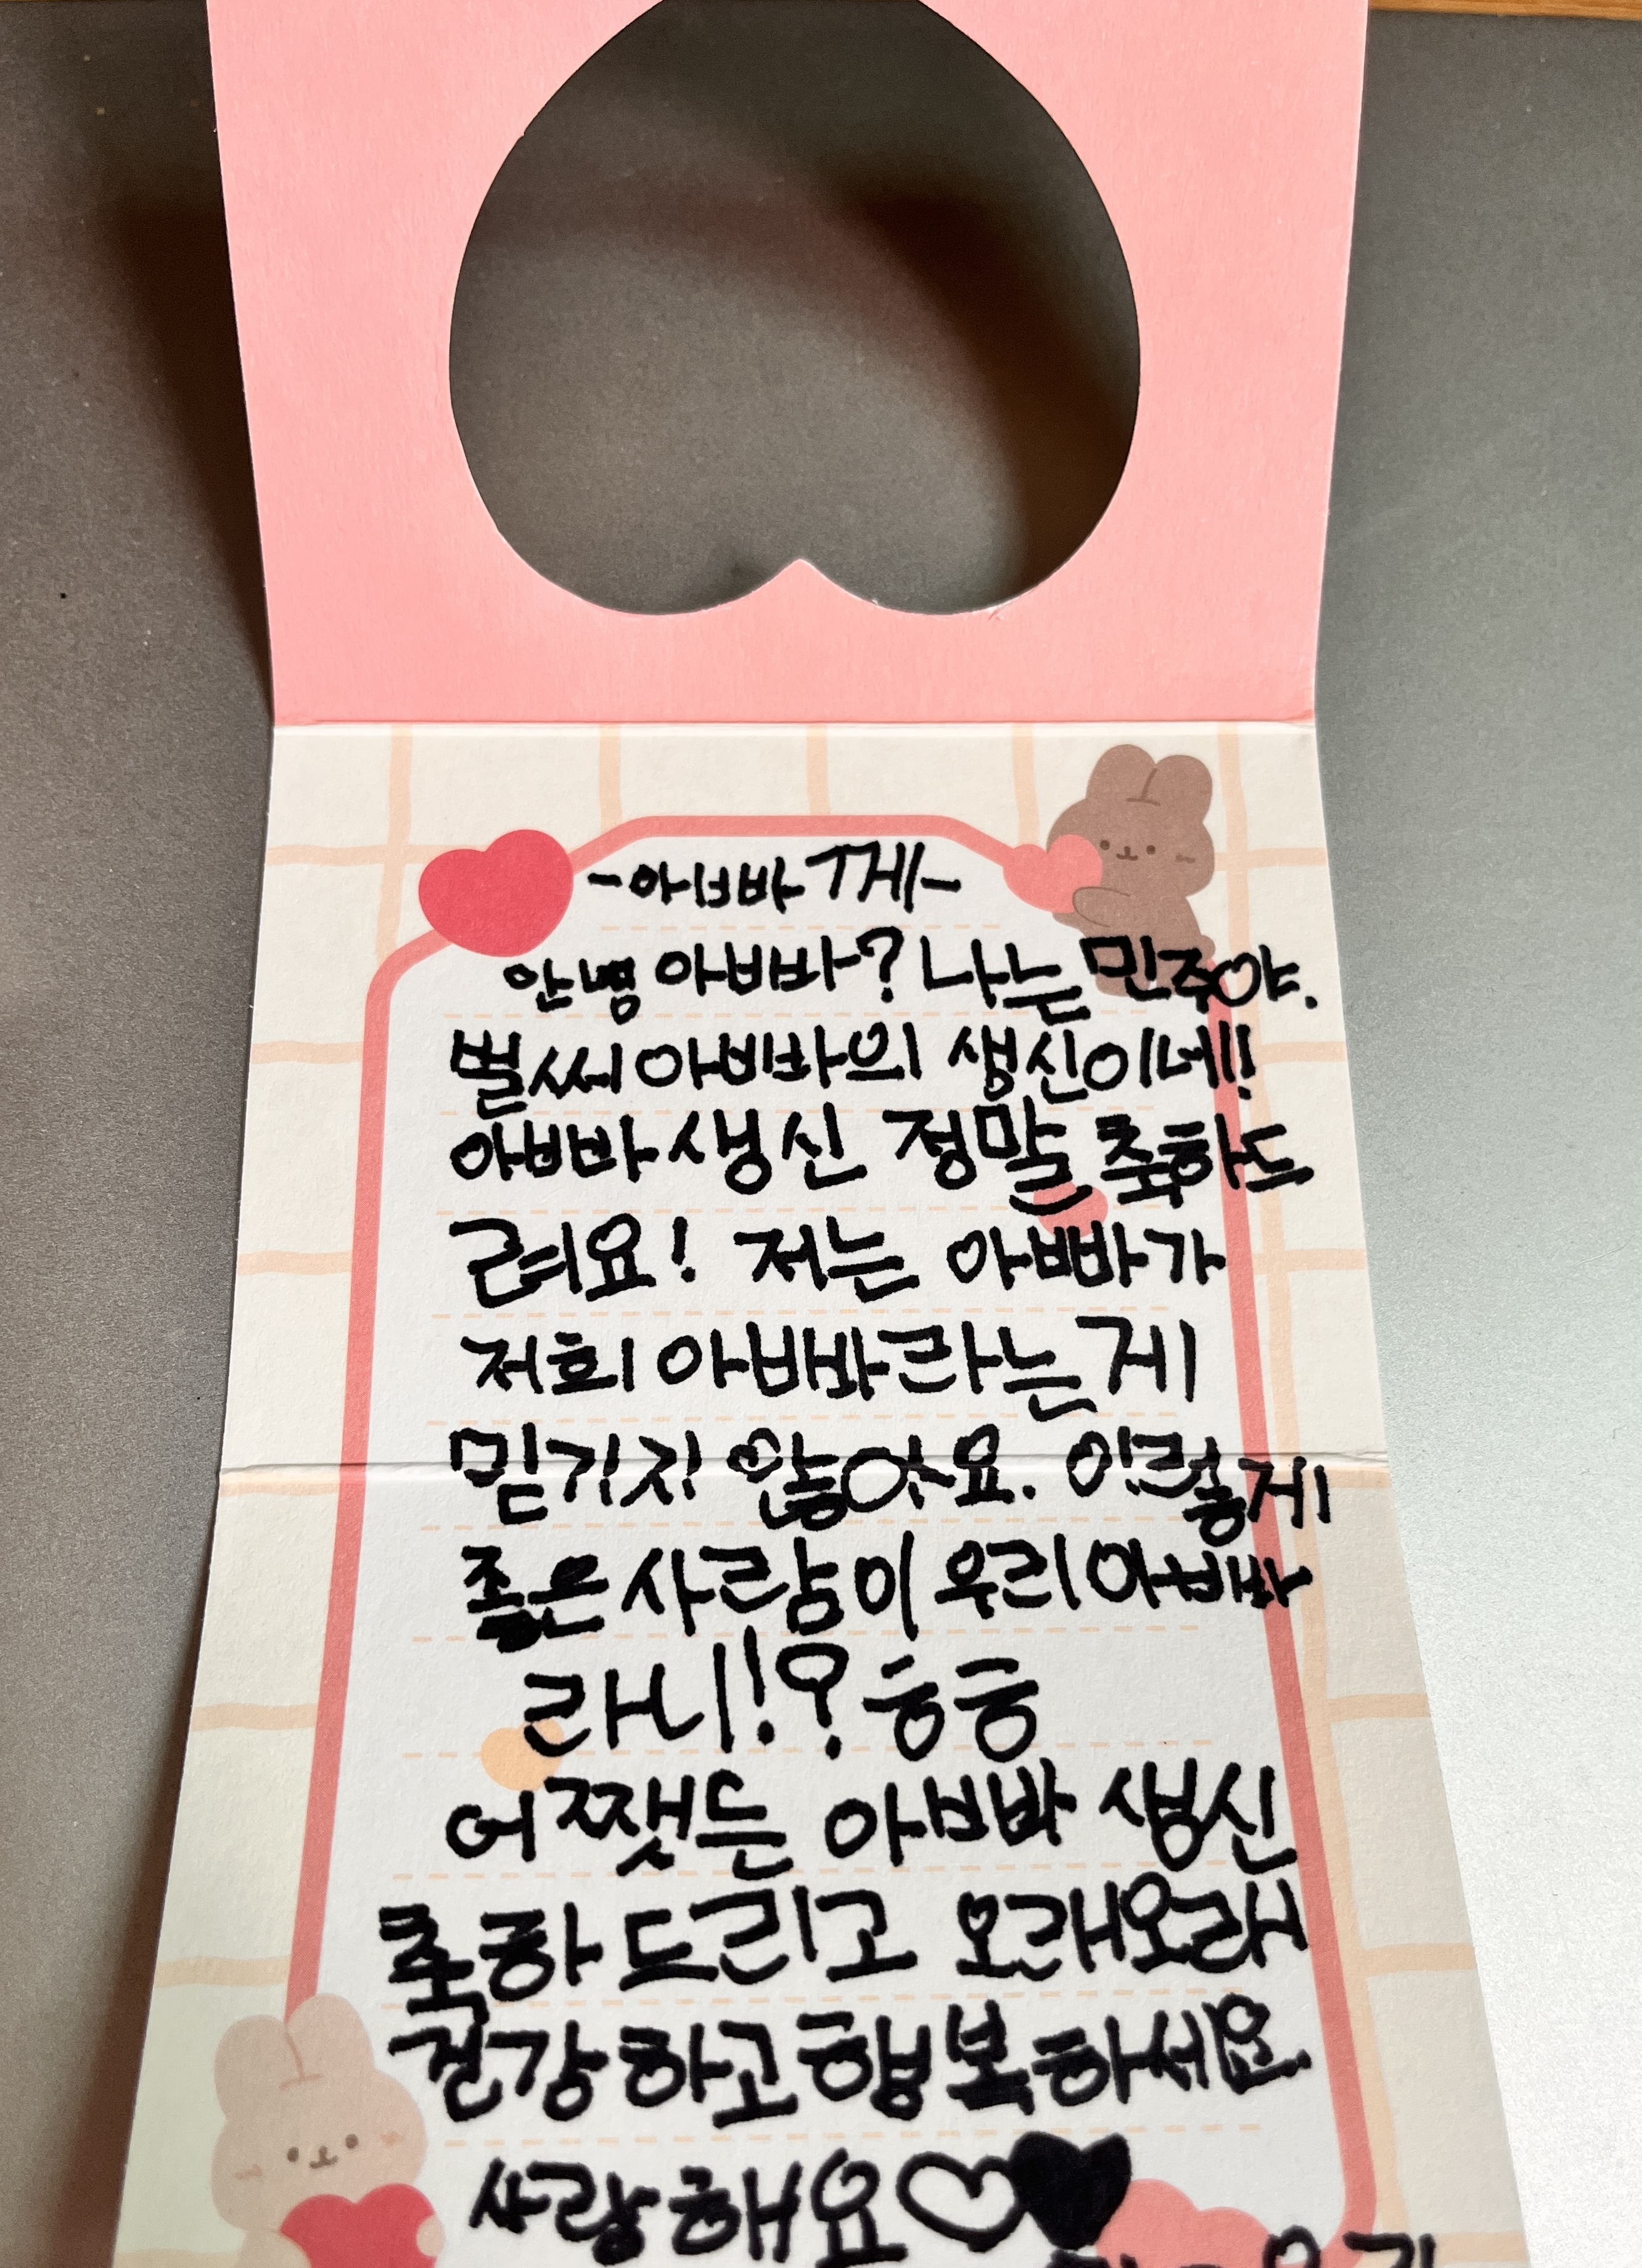 -아빠께-
안녕 아빠? 나는 민주야.
벌써 아빠의 생신이네!!
아빠 생신 정말 축하드
려요! 저는 아빠가
저희 아빠라는게
믿기지 않아요. 이렇게
좋은 사람이 우리 아빠
라니!? 흐흐
어쨋든 아빠 생신
축하드리고 오래오래
건강하고 행복하세요.
사랑해요♡♥